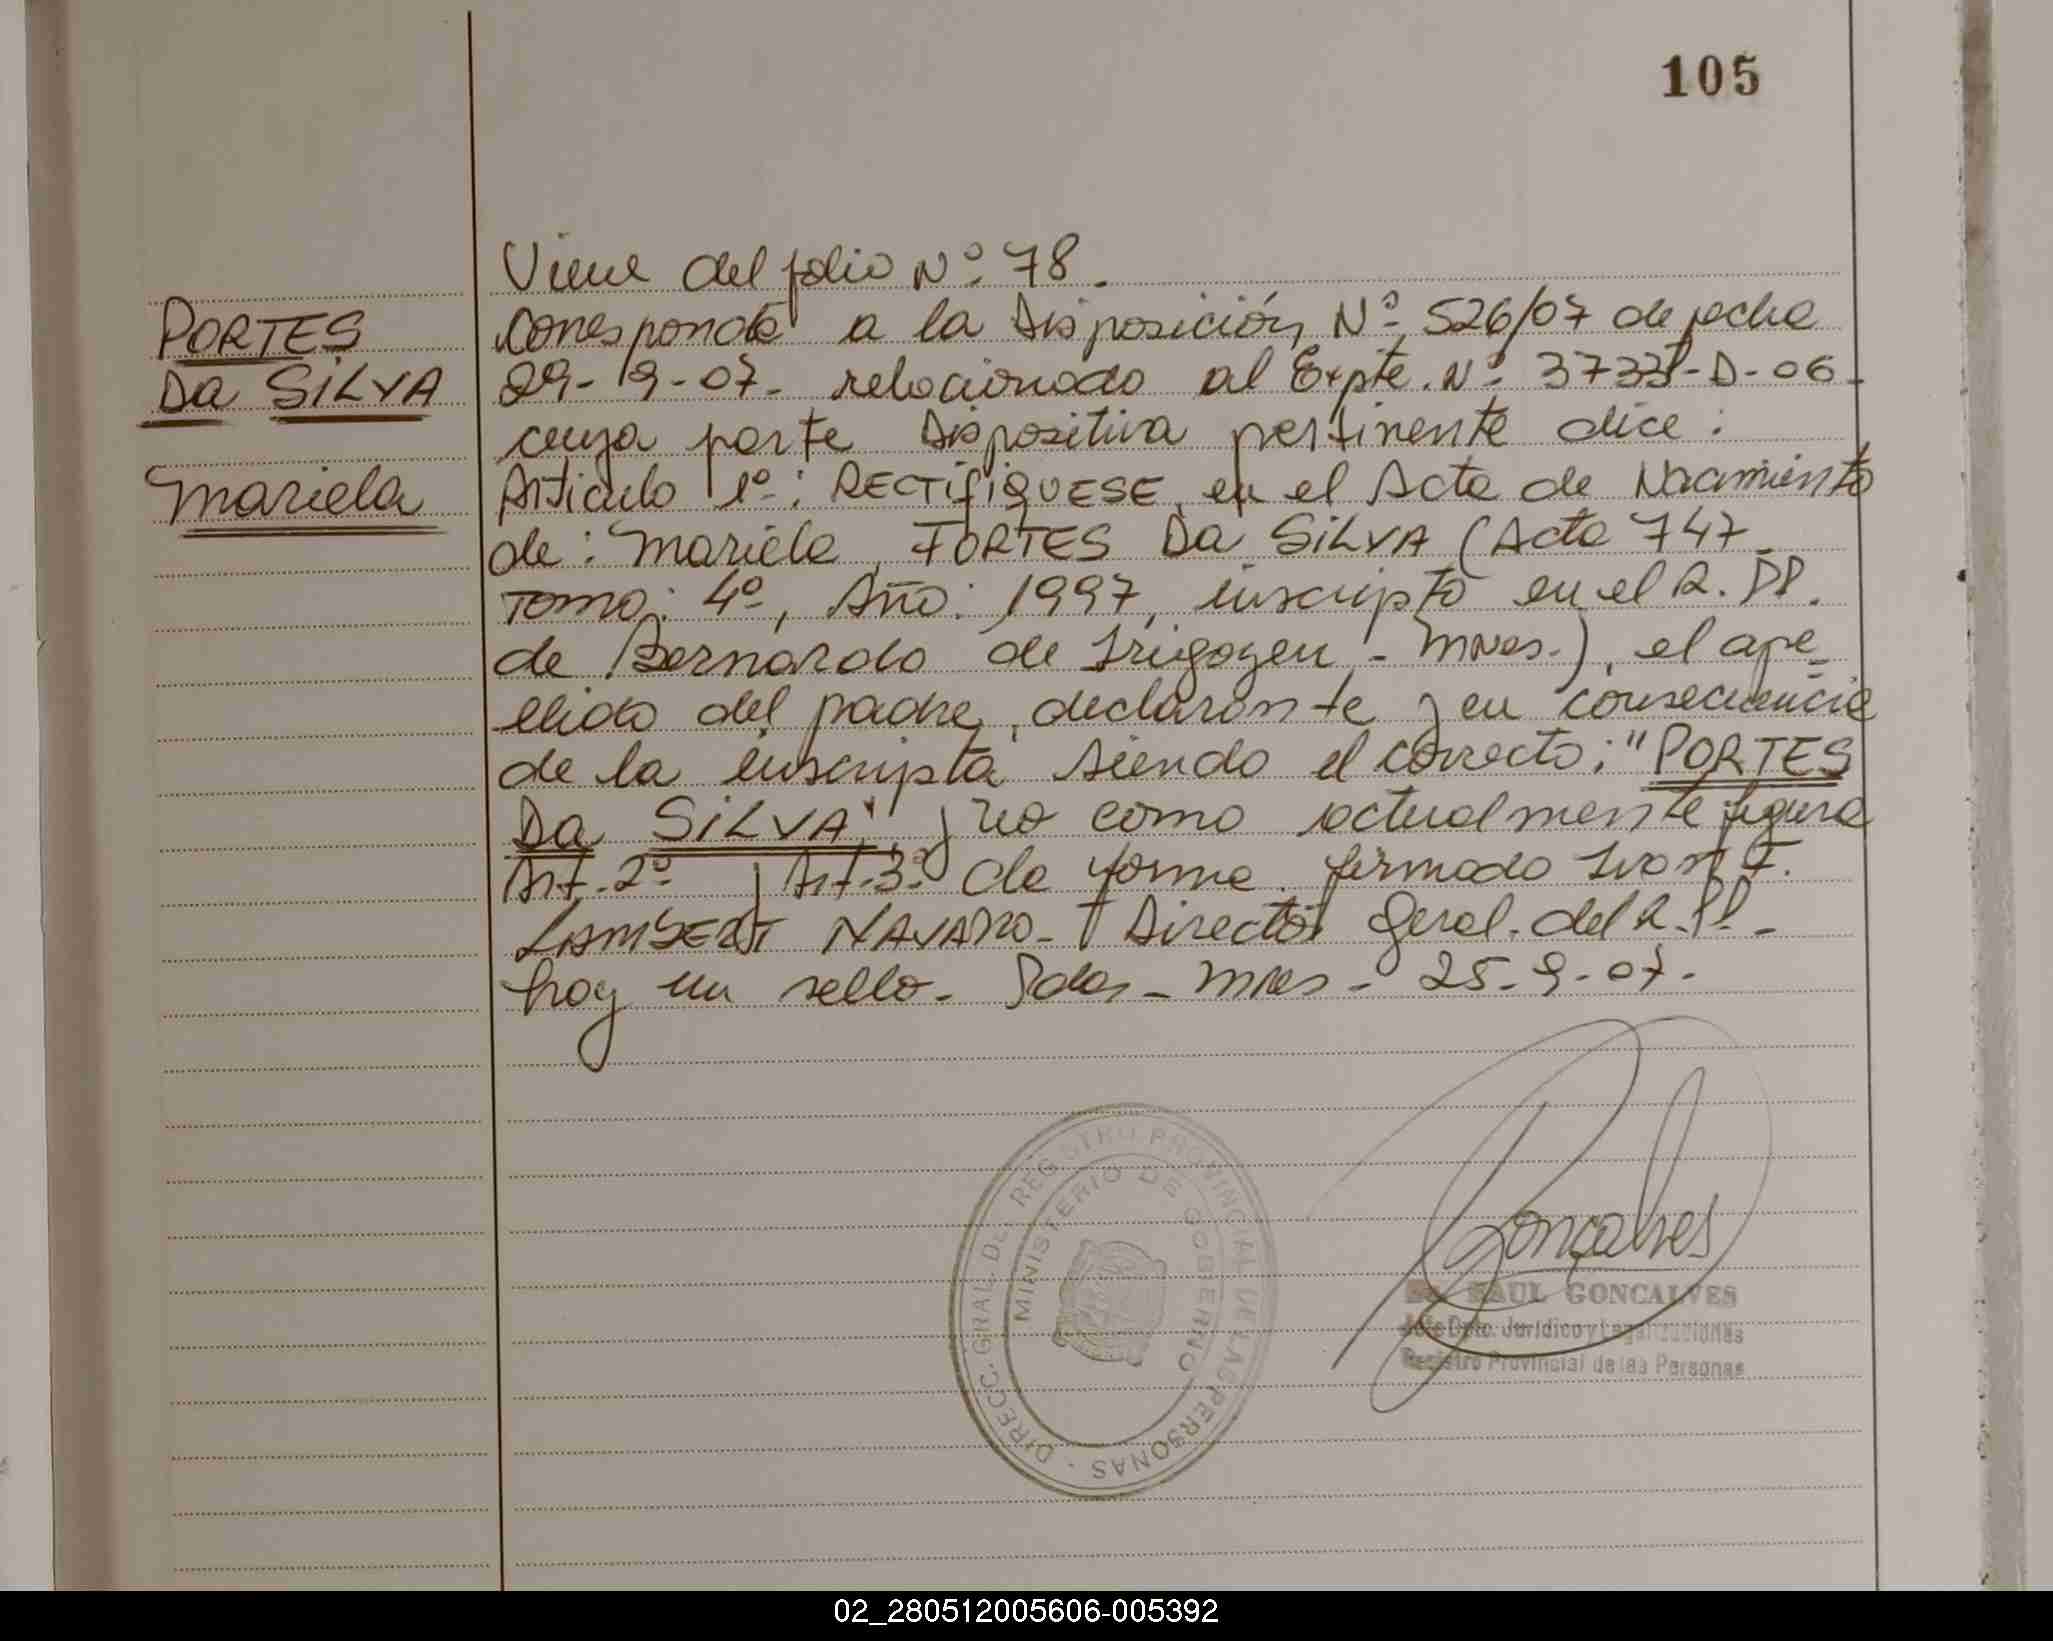 105
Viene del folio Nº 78.
PORTES
DA SILVA
Mariela
Corresponde a la Disposición Nº 526/07 de fecha
9-07- relacionado al Expte. Nº -D-06-
cuya parte Dispositiva pertinente dice:
Articulo 1º: RECTIFIQUESE, en el Acta de Nacimiento
de: Mariela FORTES DA SILVA (Acta 747-
Tomo: 4º, Año: 1997, inscripto en el R.PP.
de Bernardo de Irigoyen - Mnes.), el ape-
llido del padre, declarante y en consecuencia
de la inscripta siendo el correcto: "PORTES
DA SILVA" y no como actualmente figura
Art. 2º y Art. 3º de forma. firmado Ivan F.
LAMBERT NAVARRO- Director Geral. del R.PP.-
hay un sello- Pdas- Mnes- 25-9-07-
DIRECC. GRAL. DEL REGISTRO PROVINCIAL DE LAS PERSONAS -
MINISTERIO DE GOBIERNO
Gonçalves
RAUL GONCALVES
Jefe Dpto. Jurídico y Legalizaciones
Registro Provincial de las Personas
02_280512005606-005392